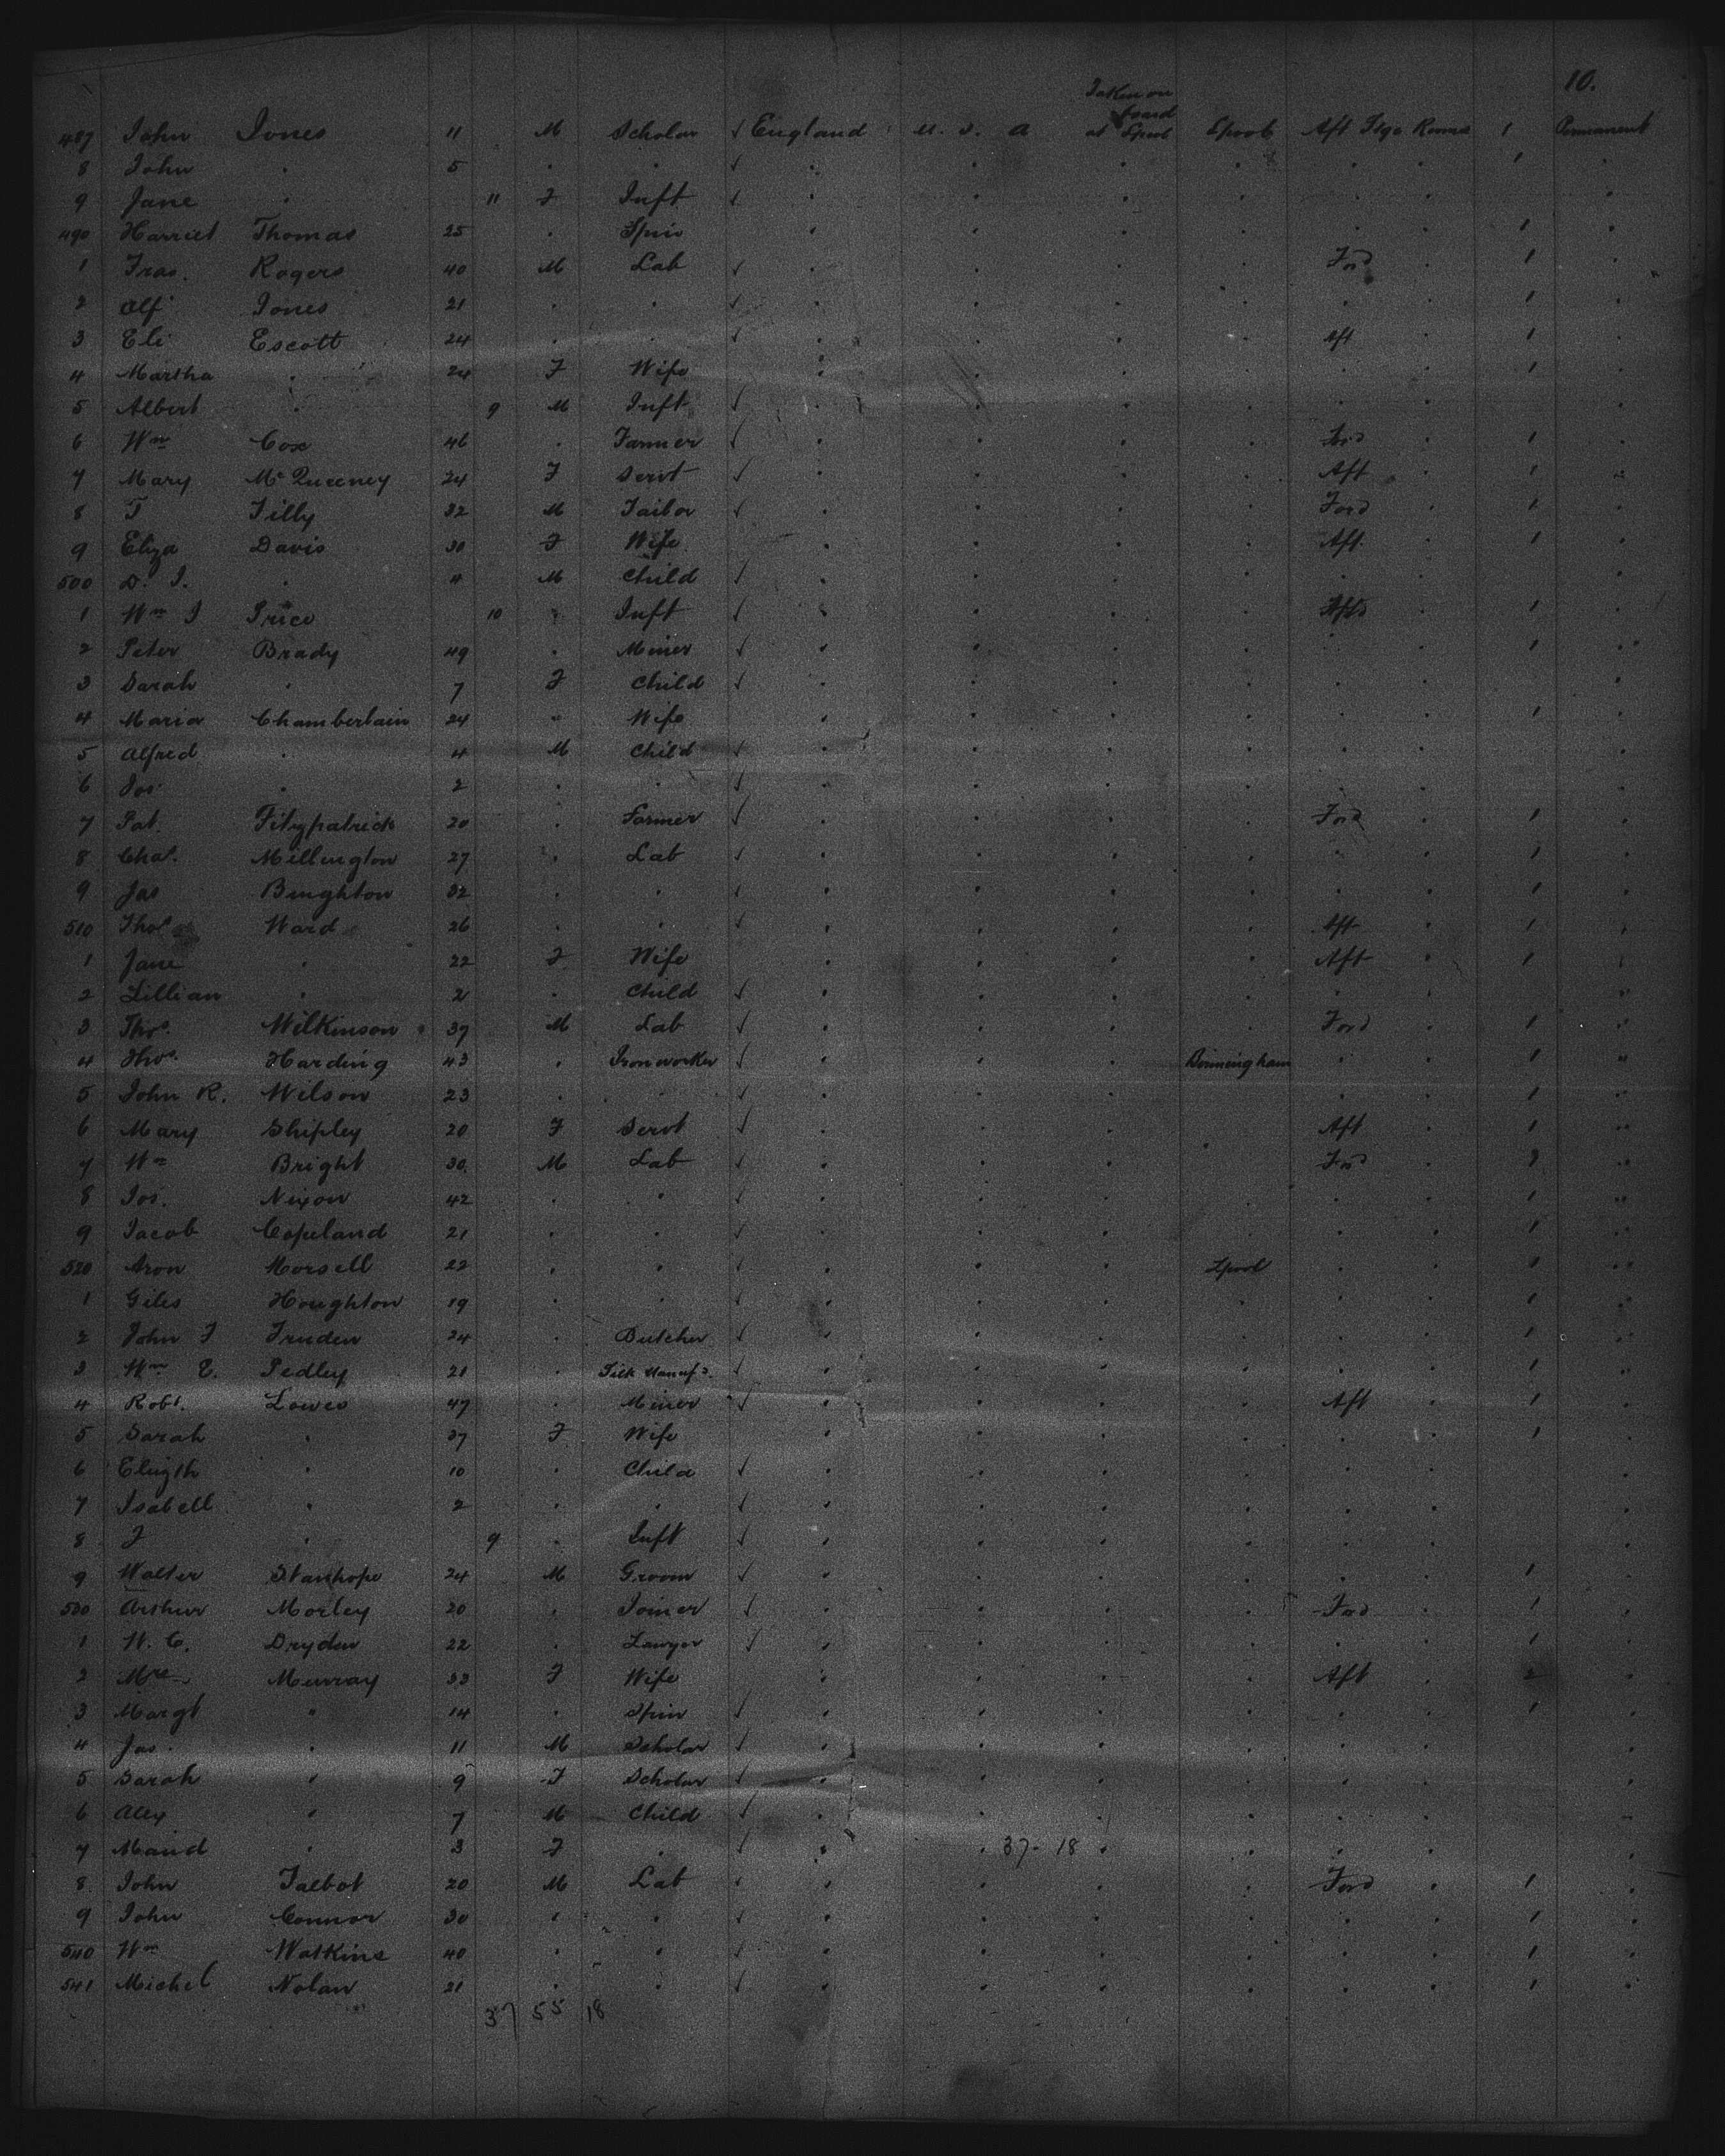 10.
Taken on
board
487 John Jones 11 M Scholar √ England U. S. A at Lpool Lpool Aft Stge Rooms 1 Permanent
8 John " 5 " " √ " " " " " " 1 "
9 Jane " 11 F Inft √ " " " " " " "
490 Harriet Thomas 25 " Spin " " " " " " 1 "
1 Fras. Rogers 40 M Lab √ " " " " Ford " 1 "
2 Alf Jones 21 " " √ " " " " " " 1 "
3 Eli Escott 24 " " √ " " " " Aft " 1 "
4 Martha " 24 F Wife " " " " " " 1 "
5 Albert " 9 M Inft √ " " " " " " "
6 Wm Cox 46 " Farmer √ " " " " Ford " 1 "
7 Mary McQueeney 24 F Servt √ " " " " Aft " 1 "
8 T Tilly 32 M Tailor √ " " " " Ford " 1 "
9 Eliza Davis 30 F Wife " " " " Aft " 1 "
500 D. J. " 4 M Child √ " " " " " " "
1 Wm J Price 10 " Inft √ " " " " " 1 "
2 Peter Brady 49 " Miner √ " " " " " " 1 "
3 Sarah " 7 F Child √ " " " " " " "
4 Maria Chamberlain 24 " Wife " " " " " " 1 "
5 Alfred " 4 M Child √ " " " " " " "
6 Jos. " 2 " " √ " " " " " " "
7 Pat. Fitzpatrick 20 " Farmer √ " " " " Ford " 1 "
8 Chas. Millington 27 " Lab √ " " " " " " 1 "
9 Jas Binghton 32 " " √ " " " " " " 1 "
510 Thos Ward 26 " " √ " " " " Aft " 1 "
1 Jane " 22 F Wife " " " " Aft " 1 "
2 Lillian " 2 " Child √ " " " " " " "
3 Thos. Wilkinson 37 M Lab √ " " " " Ford " 1 "
4 Thos. Harding 43 " Ironworker √ " " " Birmingham " " 1 "
5 John R. Wilson 23 " " √ " " " " " " 1 "
6 Mary Shipley 20 F Servt √ " " " " Aft " 1 "
7 Wm Bright 30 M Lab √ " " " " Ford " 1 "
8 Jos. Nixon 42 " " √ " " " " " " 1 "
9 Jacob Copeland 21 " " √ " " " " " " 1 "
520 Aron Morsell 22 " " √ " " " Lpool " " 1 "
1 Giles Houghton 19 " " √ " " " " " " 1 "
2 John F Truden 24 " Butcher √ " " " " " " 1 "
3 Wm E. Pedley 21 " Silk Manufr. √ " " " " " " 1 "
4 Robt. Lowes 47 " Miner √ " " " " Aft " 1 "
5 Sarah " 37 F Wife " " " " " " 1 "
6 Elizth " 10 " Child √ " " " " " " "
7 Isabell " 2 " " √ " " " " " " "
8 J " 9 " Inft √ " " " " " " "
9 Walter Stanhope 24 M Groom √ " " " " " " 1 "
530 Arthur Morley 20 " Joiner √ " " " " Ford " 1 "
1 W. C. Dryden 22 " Lawyer √ " " " " " " 1 "
2 Mrs Murray 33 F Wife " " " " Aft " 2 "
3 Margt " 14 " Spin √ " " " " " " 1 "
4 Jas. " 11 M Scholar √ " " " " " " "
5 Sarah " 9 F Scholar √ " " " " " " "
6 Alex " 7 M Child √ " " " " " " "
7 Maud " 3 F " √ " " 37-18 " " " " "
8 John Talbot 20 M Lab √ " " " " Ford " 1 "
9 John Connor 30 " " √ " " " " " " 1 "
540 Wm Watkins 40 " " √ " " " " " " 1 "
541 Michel Nolan 21 " " √ " " " " " " 1 "
37 55 18